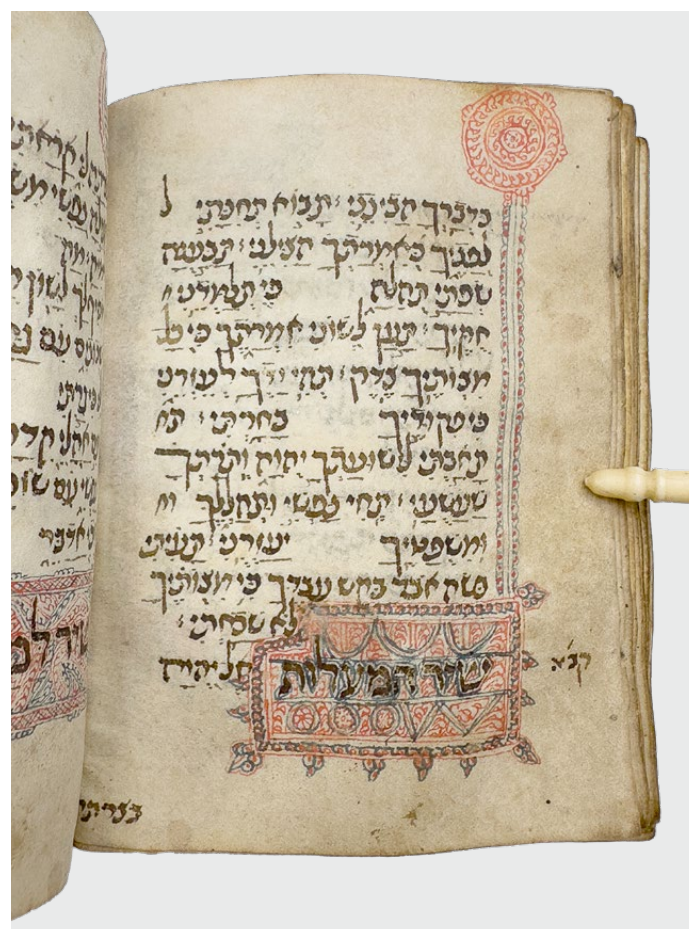 כדברך הבינני : תבוא תחנתי ל
לפניך כאמרתך הצילני : תבענה
שפתי תהלה כי תלמדני
חקיך : תען לשוני אמרתך כי כל
מצותיך צדק : תהי ידך לעזרני
כי פקודיך בחרתי : תא
תאבתי לשועתך יהוה ותרתך
שעשעי : תחי נפשי ותהללך
ומשפטיך יעזרני : תעיתי
כשה אבד בקש עבדך כי מצותיך
לא שכחתי :
שיר המעלות אל יהוה
קכא
לי קראתי
נפשי
לשון
עם
אהלי קדר
עם
אדבר
שיר